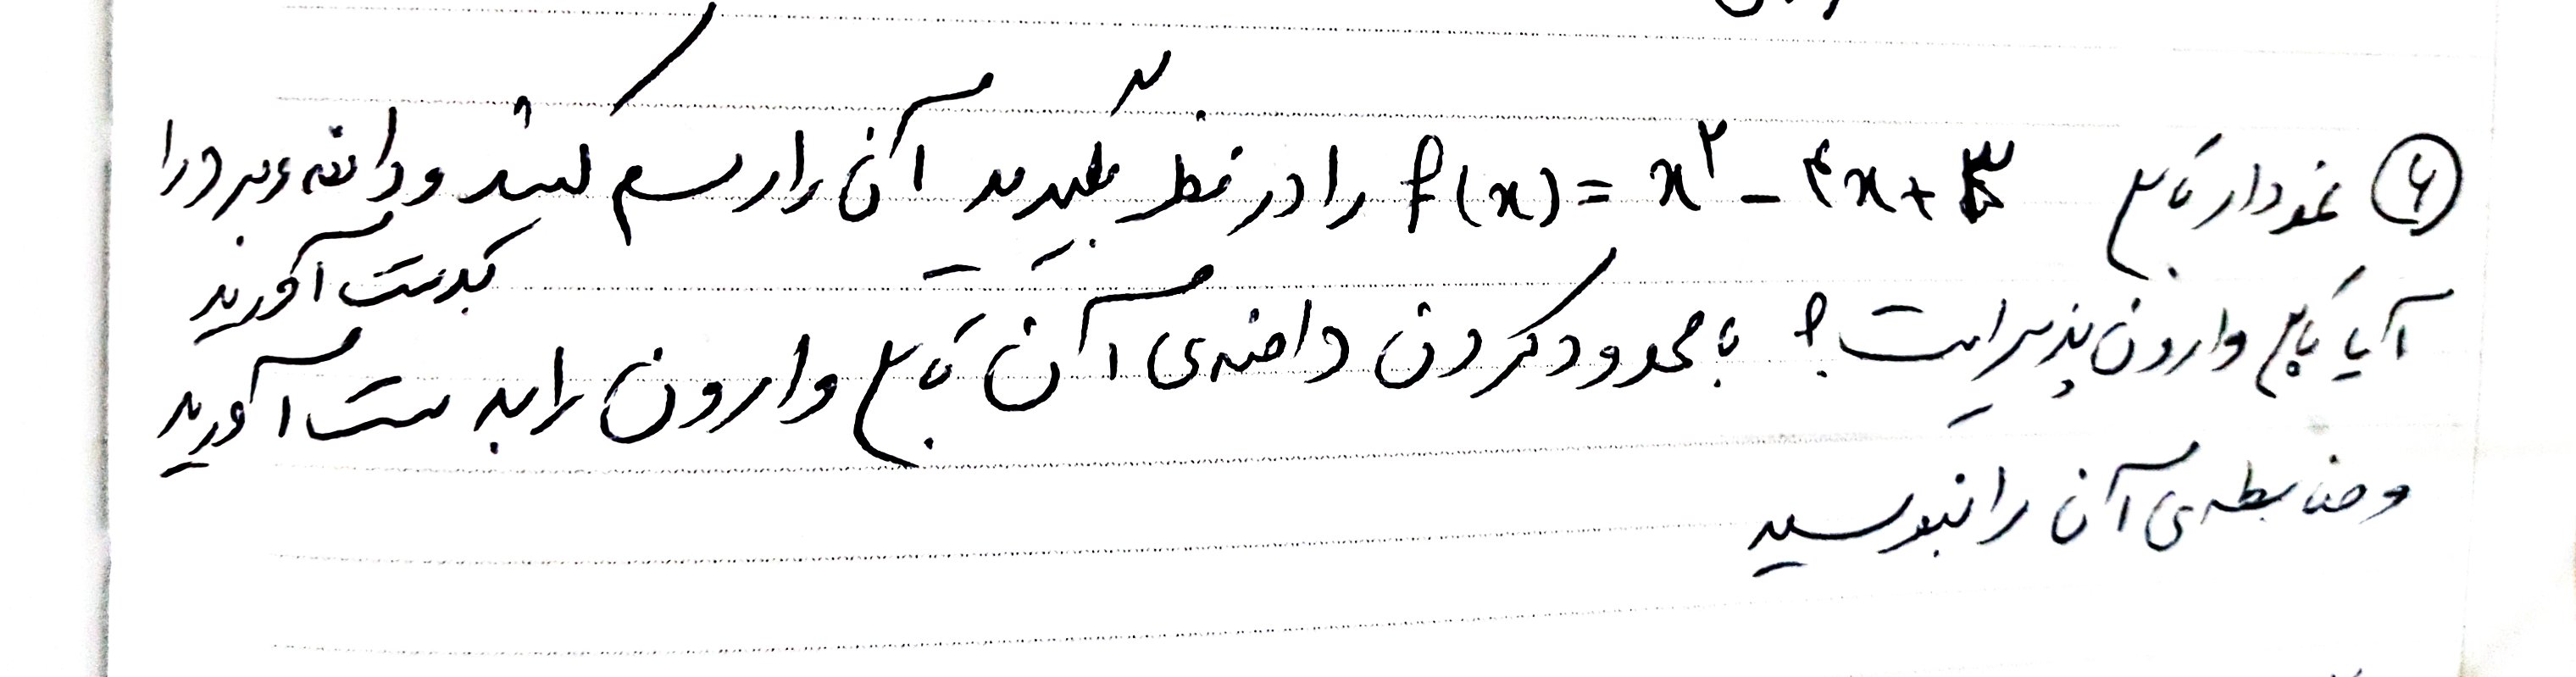 ۶ نمودار تابع f(x) = x² - ۴x + ۳ را در نظر بگیرید آن را رسم کنید و دامنه و برد را
بدست آورید
آیا تابع وارون پذیر است؟ با محدود کردن دامنه‌ی آن تابع وارون را بدست آورید
و ضابطه‌ی آن را بنویسید